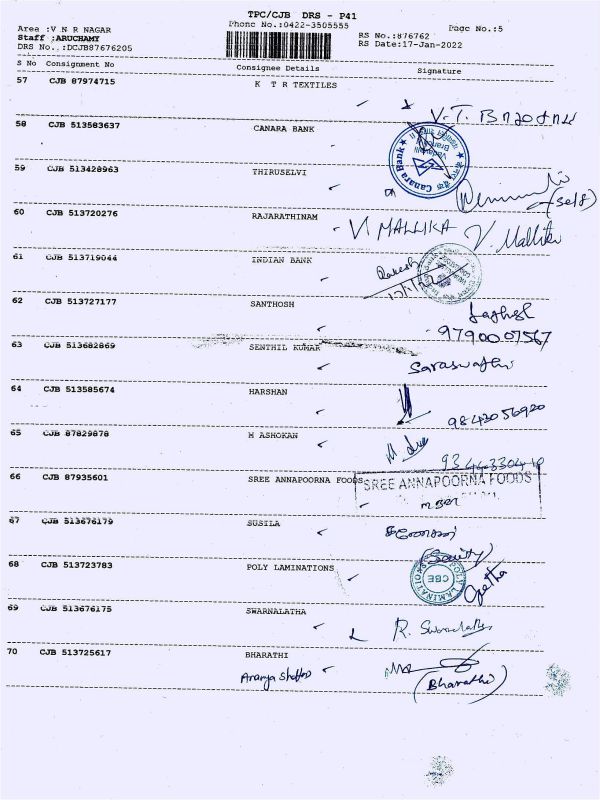 TPC/CJB DRS - P41
Area :V N R NAGAR
Phone No.:0422-3505555
Page No.:5
Staff :ARUCHAMY
RS No.:876762
DRS No.:DCJB87676205
RS Date:17-Jan-2022
S No Consignment No Consignee Details Signature
57 CJB 87974715 K T R TEXTILES
V.T.
58 CJB 513583637 CANARA BANK
Canara Bank
59 CJB 513428963 THIRUSELVI
(self)
60 CJB 513720276 RAJARATHINAM
V MALLIKA V. Mallika
61 CJB 513719044 INDIAN BANK
Rakesh
62 CJB 513727177 SANTHOSH
9790007567
63 CJB 513682869 SENTHIL KUMAR
Saraswathi
64 CJB 513585674 HARSHAN
9843056920
65 CJB 87829878 M ASHOKAN
9344330410
66 CJB 87935601 SREE ANNAPOORNA FOODS
SREE ANNAPOORNA FOODS
67 CJB 513676179 SUSILA
(Security)
68 CJB 513723783 POLY LAMINATIONS
POLY LAMINATIONS
CBE
Geetha
69 CJB 513676175 SWARNALATHA
R. Swarnalatha
70 CJB 513725617 BHARATHI
(Bharathi)